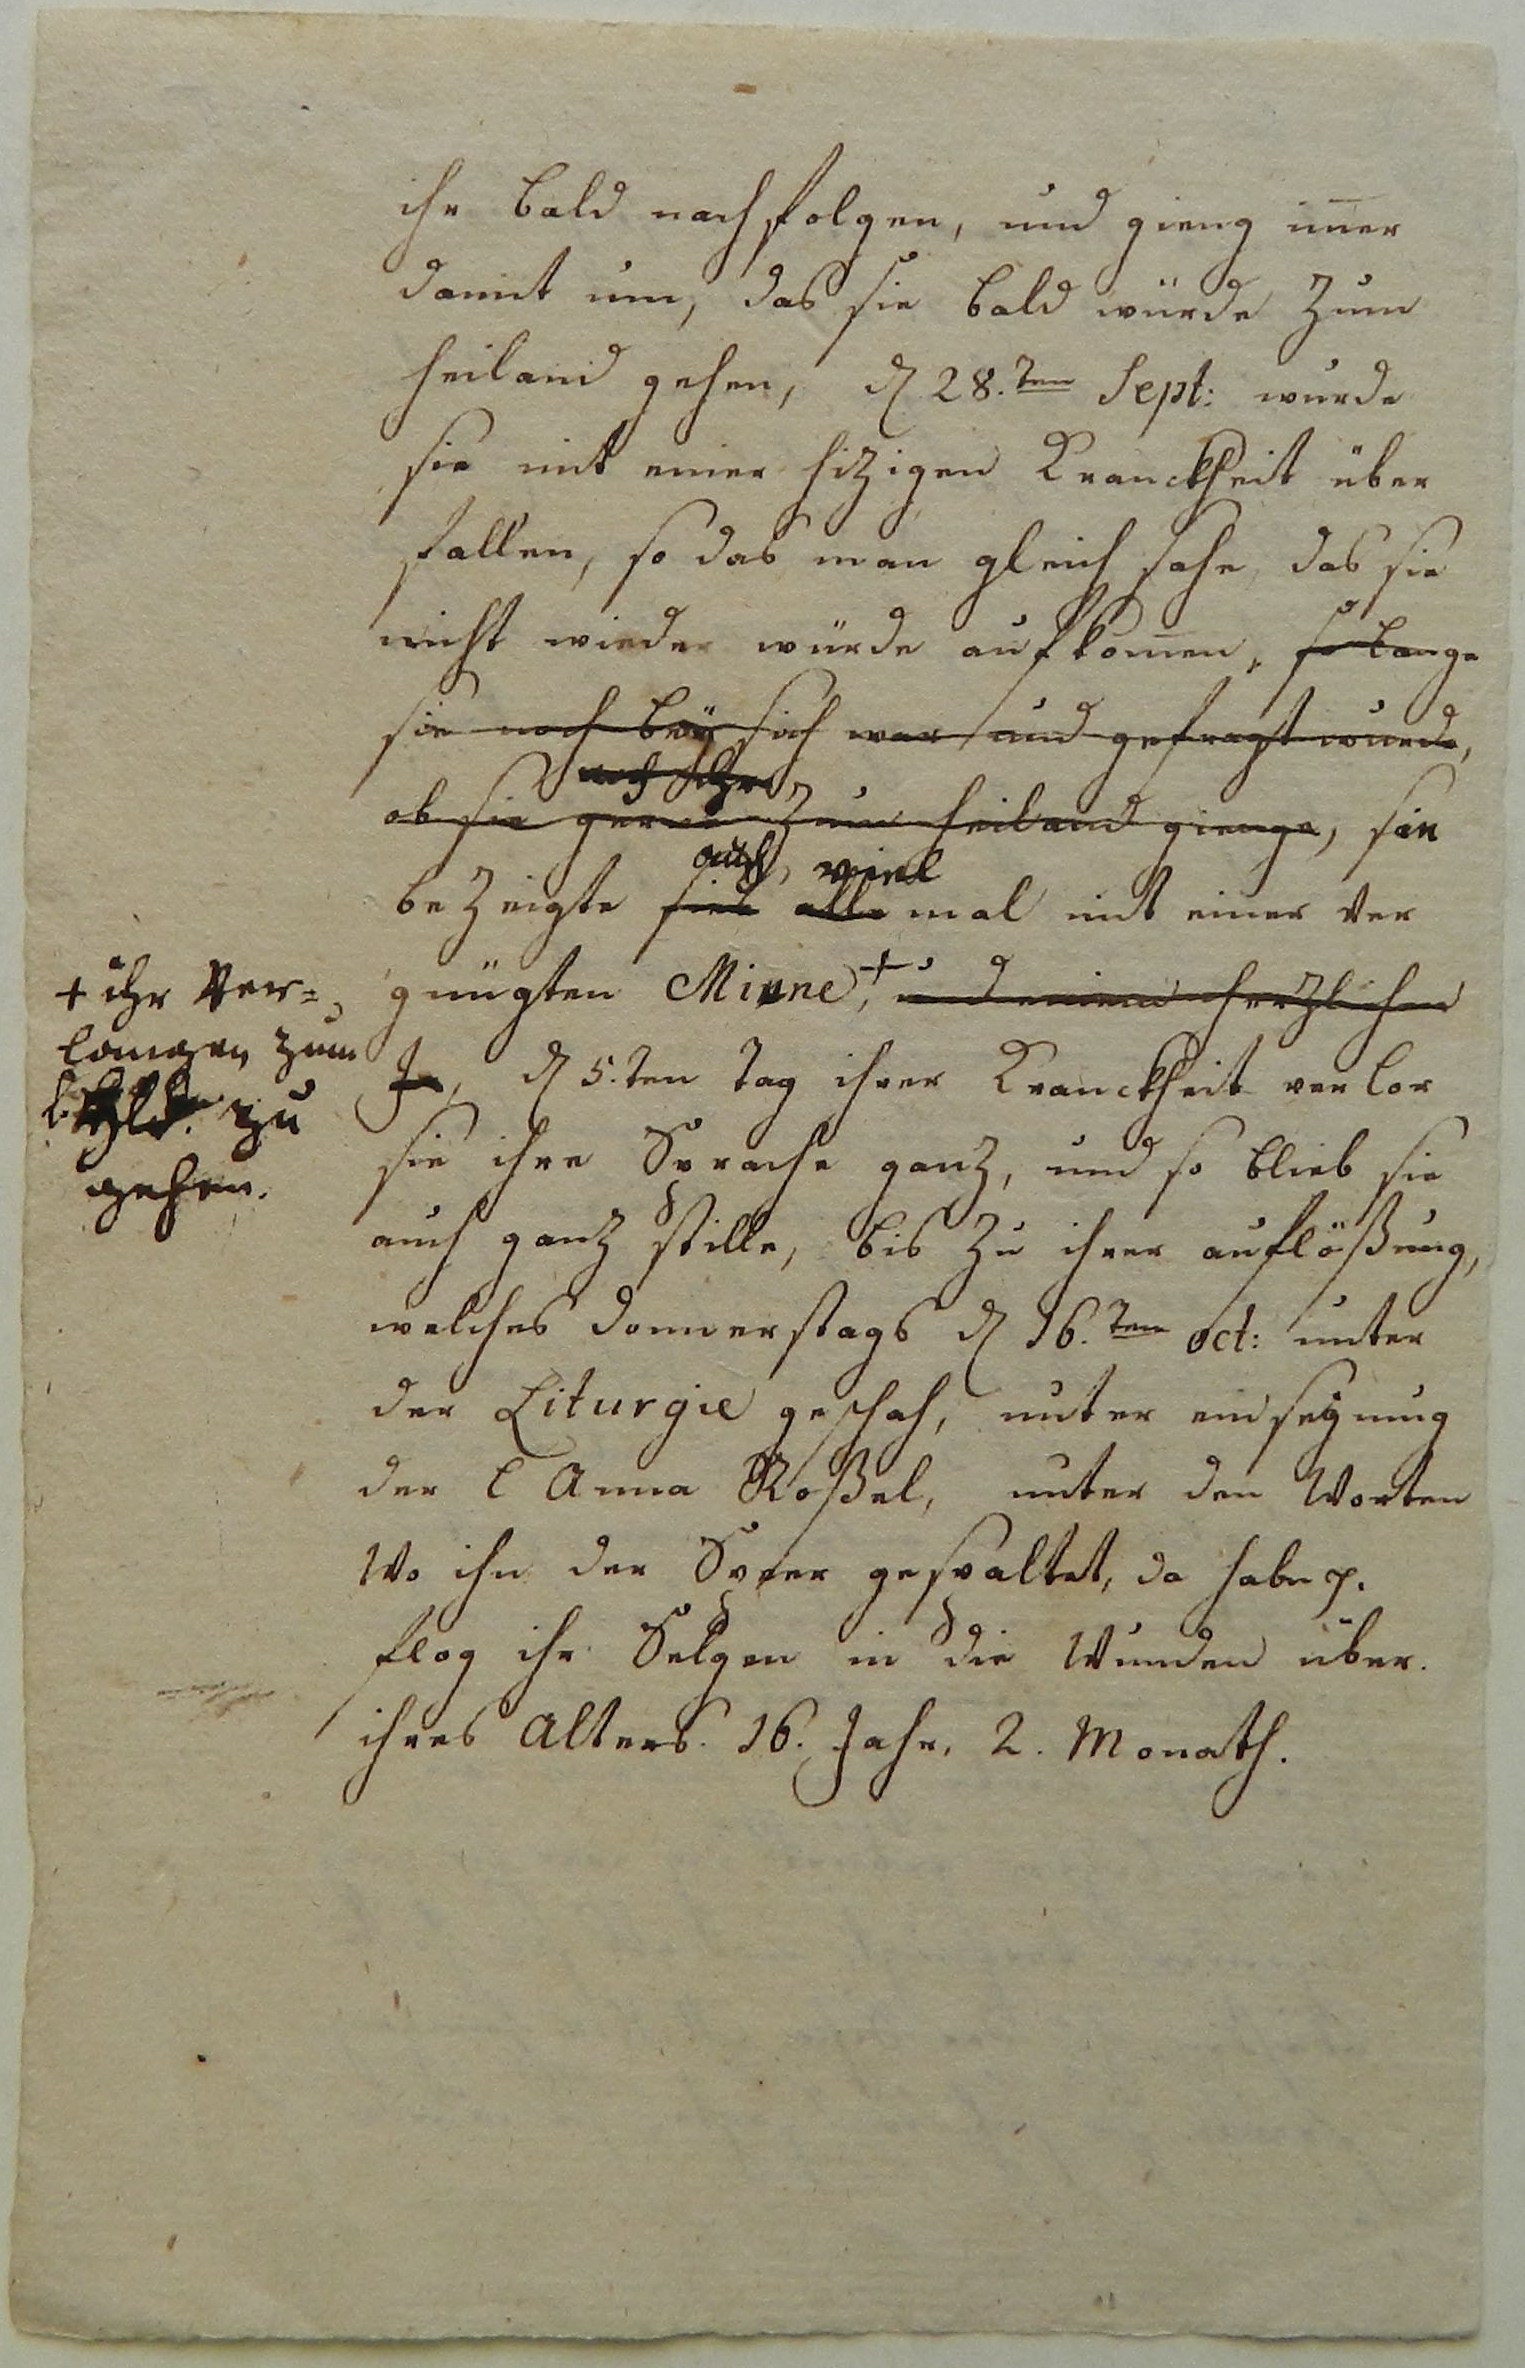 ihr bald nachfolgen, und gieng im̅er
damit um, das sie bald würde zum
heiland gehen, d 28.ten Sept: wurde
sie mit einer hizigen Kranckheit über
fallen, so das man gleich sahe, das sie
nicht wieder würde aufkom̅en, so lange
sie noch beÿ sich war und gefragt wurde,
ob sie gerne zum heiland gienge, sie
auch viel
bezeigte allemal mit einer ver
gnügten Miene +, und einem herzlichen
Ja, d 5.ten Tag ihrer Kranckheit verlor
sie ihre Sprache ganz, und so blieb sie
auch ganz stille, bis zu ihrer auflößung,
welches donnerstags d 16.ten oct: unter
der Liturgie geschah, unter einsegnung
der l Anna Roßel, unter den Worten
Wo ihn der Speer gespaltet, da habe p.
flog ihr Selgen in die Wunden über.
ihres Alters. 16. Jahr, 2. Monath.
+ ihr Ver=
langen zum
l. Hld. zu
gehen.